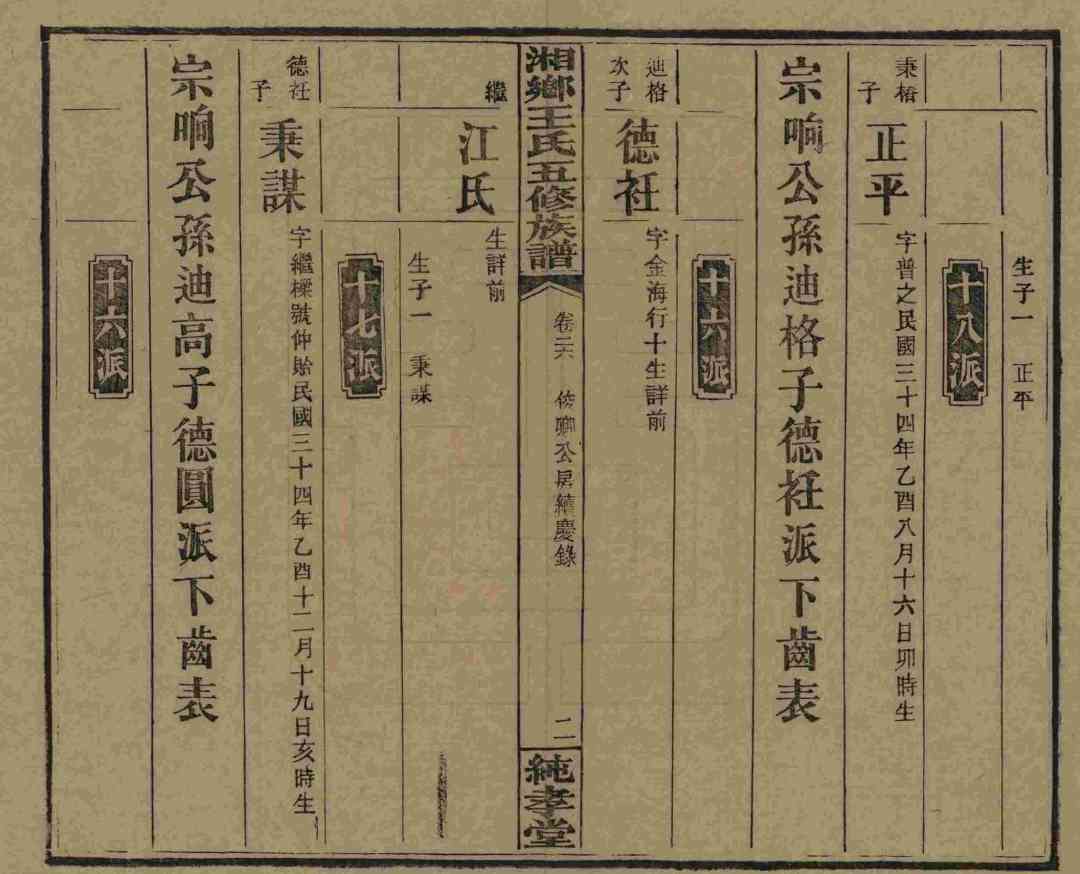 生子一 正平
十八派
秉樁子
正平
字普之民國三十四年乙酉八月十六日卯時生
宗响公孫迪格子德衽派下齒表
十六派
迪格次子
德衽
字金海行十生詳前
湘鄉王氏五修族譜
卷二六
俊卿公房續慶錄
二
純孝堂
繼
江氏
生詳前
生子一 秉謀
十七派
德衽子
秉謀
字繼樑號仲貽民國三十四年乙酉十二月十九日亥時生
宗响公孫迪高子德圓派下齒表
十六派